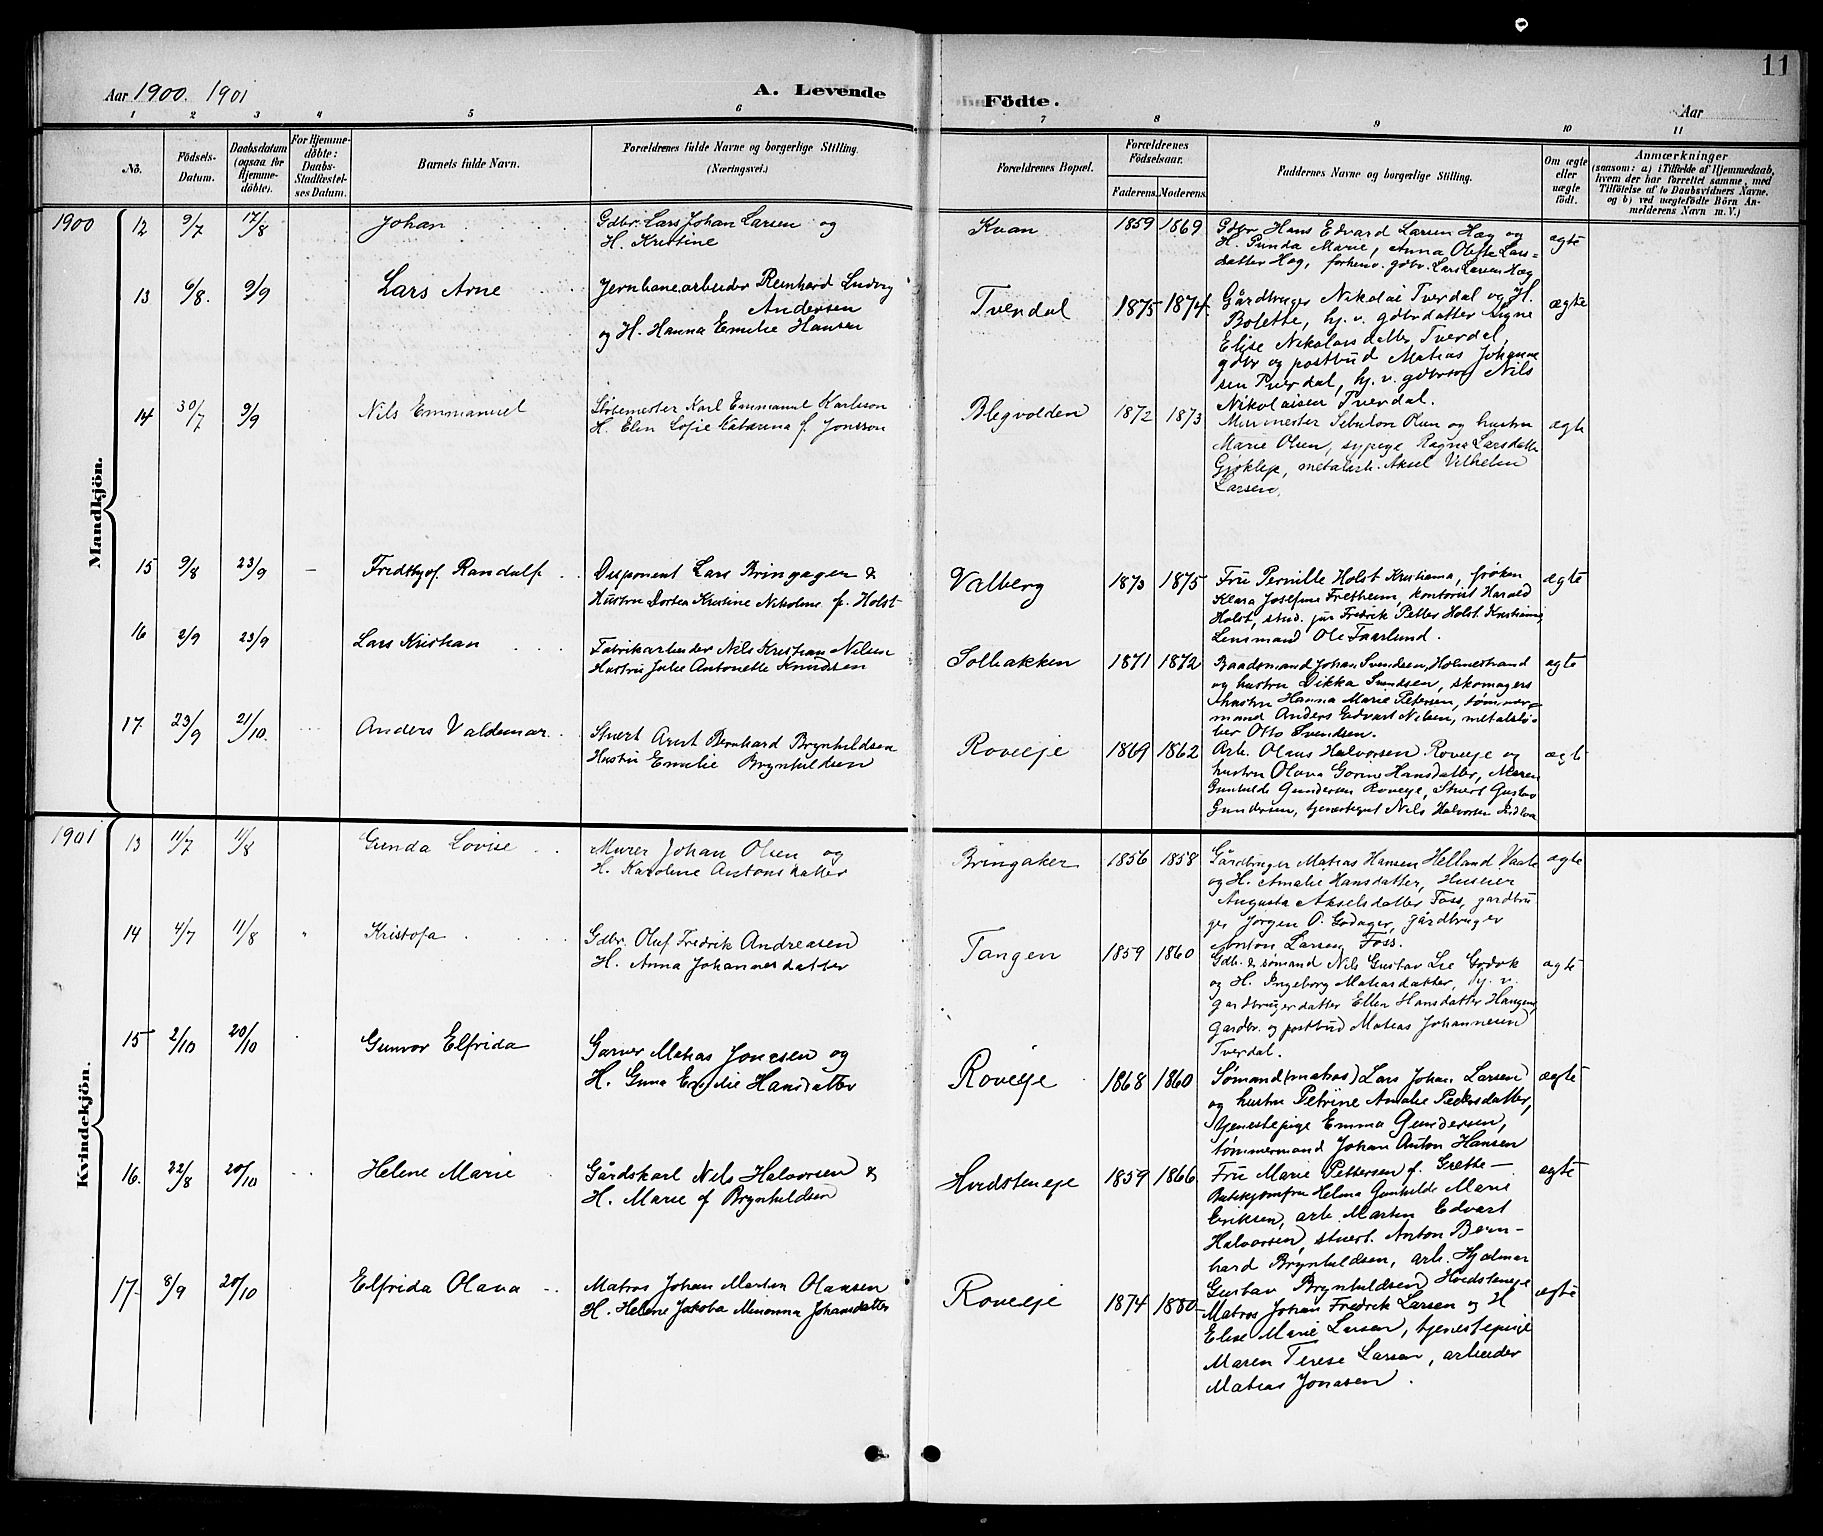 Aar 1900. 1901
A. Levende
Födte.
Aar
11
1 2 3 4 5 6 7 8 9 10 11
No.
Födsels-
Datum.
Daabsdatum
(ogsaa for
Hjemme-
döbte).
For Hjemme-
döbte:
Daabs-
Stadfæstel-
ses Datum.
Barnets fulde Navn.
Forældrenes fulde Navne og borgerlige Stilling.
(Næringsvei.)
Forældrenes Bopæl.
Forældrenes
Födselsaar.
Faderens. Moderens.
Faddernes Navne og borgerlige Stilling.
Om ægte
eller
uægte
födt.
Anmærkninger
(saasom: a) i Tilfælde af Hjemmedaab,
hvem der har forrettet samme, med
Tilföielse af to Daabsvidners Navne,
og b) ved uægtefödte Börn An-
melderens Navn m. V.)
1900
Mandkjön.
12 9/7 17/8 Johan
Gdbr. Lars Johan Larsen og
H. Kristine
Kvan 1859 1869
Gdbr Hans Edvard Larsen Høg og
H. Gunda Marie, Anna Olefte Lars-
datter Høg, forhenv. gdbr. Lars Larsen Høg
ægte
13 6/8. 9/9 Lars Arne
Jernbanearbeider Reinhard Ludvig
Andersen
og H. Hanna Emilie Hansen
Tverdal 1875 1874
Gårdbruger Nikolai Tverdal og H.
Bolette, hj. v. gdbrdatter Signe
Elise Nikolaisdatter Tverdal,
gdbr og postbud Matias Johanne
sen Tverdal, hj. v. gdbrsøn Nils
Nikolaisen Tverdal.
ægte
14 30/7 9/9 Nils Emmanuel
Støbemester Karl Emmanuel Karlsson
H. Elin Sofie Katarina f. Jonsson
Blegvolden 1872 1873
Murmester Olsen og hustru
Marie Olsen, sypige Ragna Larsdatter
Gjøklep, metalarb. Aksel Vilhelm
Larsen.
ægte
15 9/8 23/9 – Fredthjof Randulf
Disponent Lars Bringager &
Hustru Dortea Kristine Nikoline f. Holst
Valberg 1873 1875
Fru Pernille Holst Kristiania, frøken
Klara Josefine Fretheim, kontorist Harald
Holst, stud. jur Fredrik Petter Holst Kristiania
Lensmand Ole Faarlund.
ægte
16 2/9 23/9 Lars Kristian
Fabrikarbeider Nils Kristian Nilsen
Hustru Julie Antonette Knudsen
Solbakken 1871 1872
Baadsmand Johan Svendsen, Holmestrand
og hustru Dikka Svendsen, skomagers
hustru Hanna Marie Petersen, tømmer-
mand Anders Edvart Nilsen, metalstø-
ber Otto Svendsen.
ægte
17. 23/9 21/10. Anders Valdemar
Stuert Arnt Bernhard Brynhildsen
Hustru Emilie Brynhildsen
Roveeje 1869 1862
Arb. Olaus Halvorsen Roveeje og
hustru Olava Gorine Hansdatter, Maren
Gunhilde Gundersen Roveeje, Stuert Gustav
Gundersen, tjenestegut Nils Halvorsen
ægte
1901
Kvindekjön.
13 11/7 11/8 Gunda Lovise
Murer Johan Olsen og
H. Karoline Antonsdatter
Bringaker 1856 1858
Gårdbruger Matias Hansen Helland Vaale
og H. Amalie Hansdatter, Huseier
Augusta Akselsdatter Foss, gardbru
ger Jørgen O. Godager, gårdbruger
Anton Larsen Foss.
ægte
14 4/7 11/8 " Kristofa
Gdbr. Oluf Fredrik Andreasen
H. Anna Johannesdatter
Tangen 1859 1860
Gdb. & sømand Nils Gustav Lie
og H. Ingeborg Matiasdatter, hj. v.
gardbrugerdatter Ellen Hansdatter Hangen,
gardbr. og postbud Matias Johannesen
Tverdal.
ægte
15 2/10 20/10 Gunvor Elfrida
Garver Matias Jonesen og
H. Gina Emilie Hansdatter
Roveeje 1868 1860
Sømand (matros) Lars Johan Larsen
og hustru Petrine Amalie Pedersdatter,
tjenestepige Emma Gundersen,
tømmermand Johan Anton Hansen
ægte
16. 22/8 20/10 Helene Marie
Gårdskarl Nils Halvorsen &
H. Marie f Brynhildsen
Hvidsteneje 1859 1866
Fru Marie Pettersen f. Grette –
Butikjomfru Helma Gunhilde Marie
Eriksen, arb. Martin Edvart
Halvorsen, stuert. Anton Bern-
hard Brynhildsen, arb. Hjalmar
Gustav Brynhildsen Hvidsteneje
ægte
17. 8/9 20/10 Elfrida Olava
Matros Johan Martin Olausen
H. Helene Jakoba Minonna Johansdatter
Roveeje 1874 1880
Matros Johan Fredrik Larsen og H
Elise Marie Larsen, tjenestepige
Maren Terese Larsen, arbeider
Matias Jonasen.
ægte